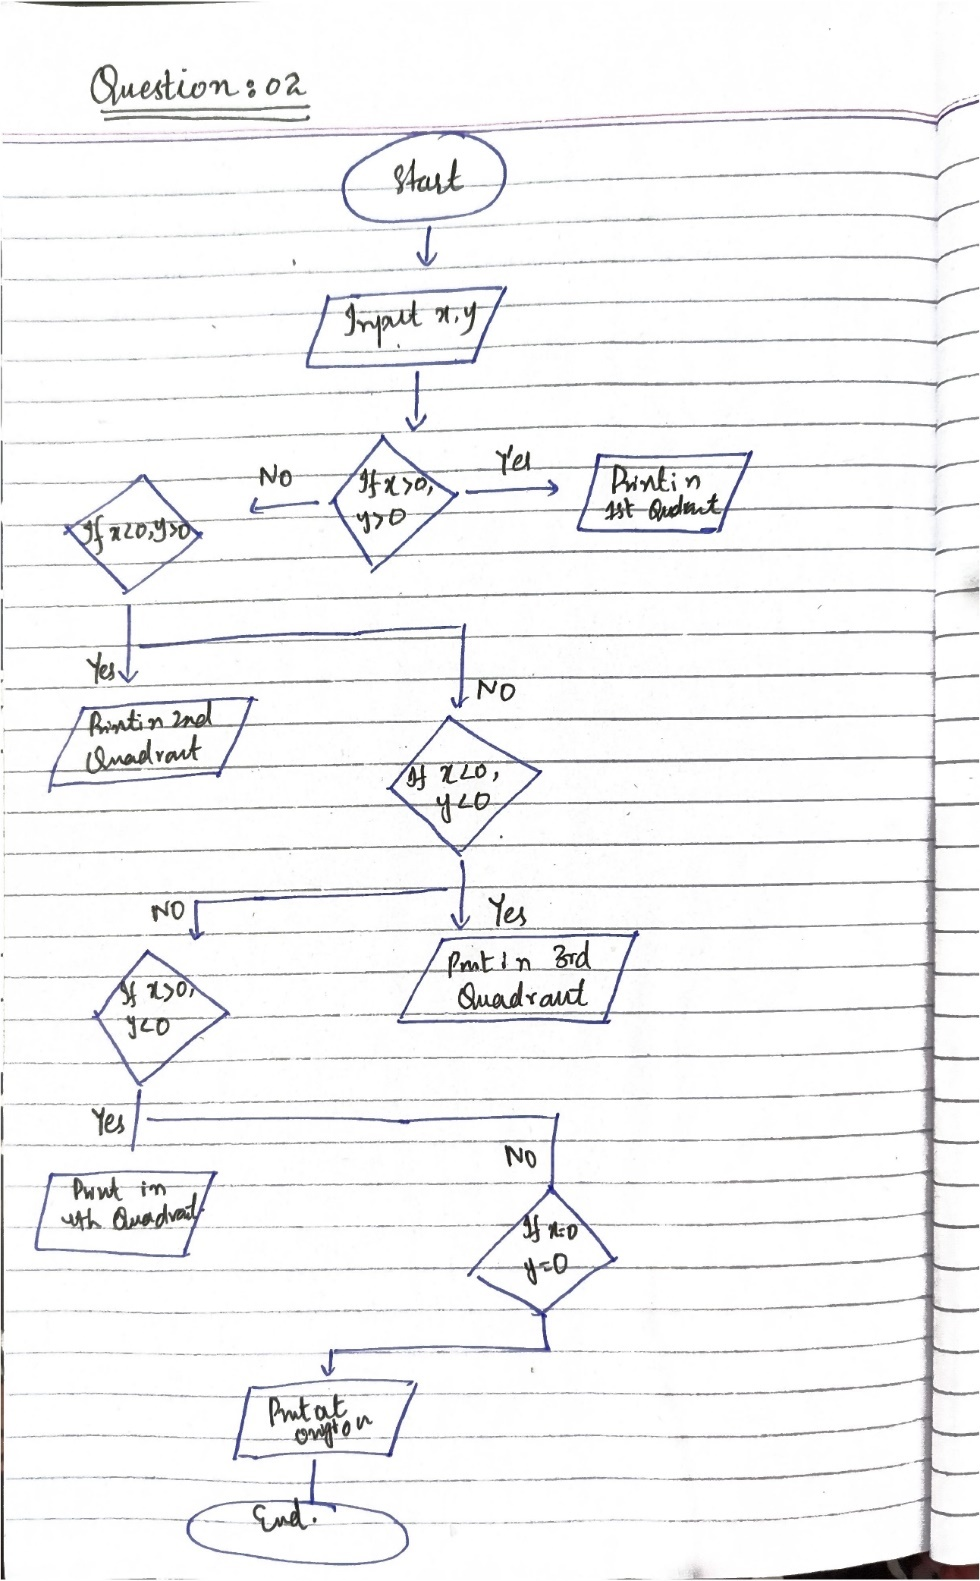 Question: 02
Start
Input x, y
If x>0,
y>0
Yes
Print in
1st Qudrant
NO
If x<0, y>0
Yes
Print in 2nd
Quadrant
NO
If x<0,
y<0
Yes
Print in 3rd
Quadrant
NO
If x>0,
y<0
Yes
Print in
4th Quadrant
NO
If x=0
y=0
Print at
End.